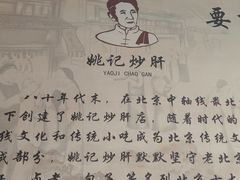 要
姚记炒肝
YAOJI CHAO GAN
八十年代末，在北京中轴线散
下创建了姚记炒肝店，随着时代的
线文化和传统小吃成为北京传统文
成部分，姚记炒肝默默坚守老北